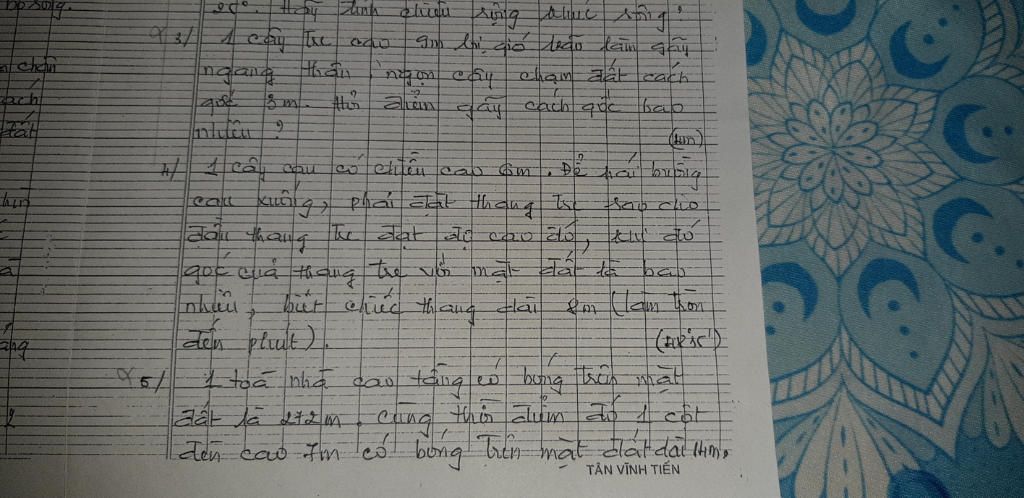 bờ sông.
25°. Hãy tính chiều rộng khúc sông?
3/ 1 cây tre cao 9m bị gió bão làm gãy
ngang thân, ngọn cây chạm đất cách
gốc 3m. Hỏi điểm gãy cách gốc bao
nhiêu? (4m)
4/ 1 cây cau có chiều cao 6m. Để hái buồng
cau xuống, phải đặt thang tre sao cho
đầu thang tre đạt độ cao đó, khi đó
góc của thang tre với mặt đất là bao
nhiêu, biết chiếc thang dài 8m (làm tròn
đến phút). (48°35')
5/ 1 toà nhà cao tầng có bóng trên mặt
đất là 272m. Cùng thời điểm đó 1 cột
đèn cao 7m có bóng trên mặt đất dài 14m.
TÂN VĨNH TIẾN